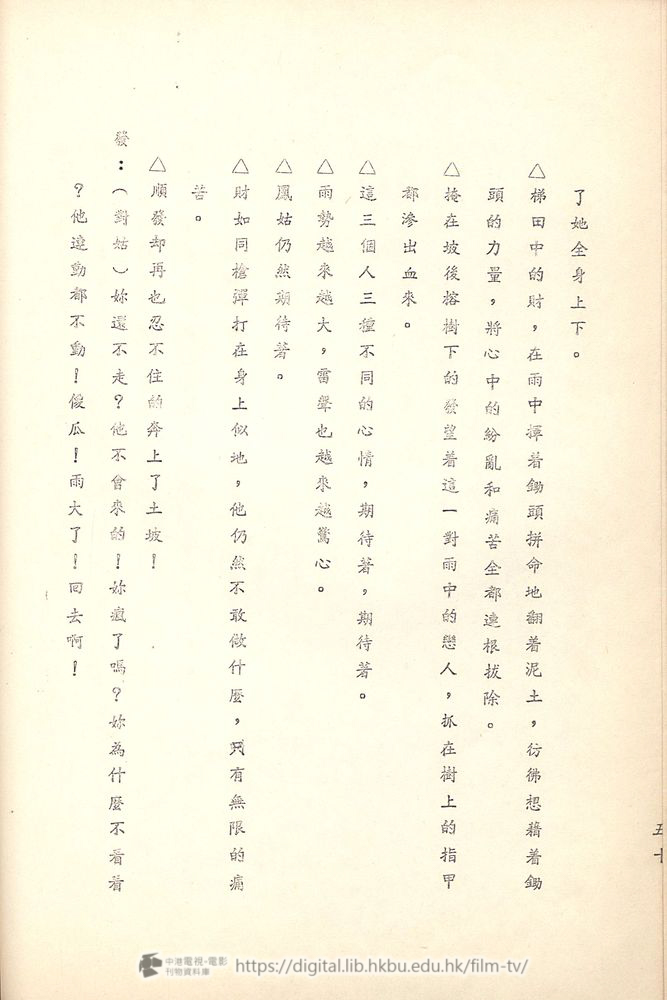 了她全身上下。
△梯田中的財，在雨中揮着鋤頭拼命地翻着泥土，彷彿想藉着鋤
頭的力量，將心中的紛亂和痛苦全都連根拔除。
△掩在坡後榕樹下的發望着這一對雨中的戀人，抓在樹上的指甲
都滲出血來。
△這三個人三種不同的心情，期待著，期待著。
△雨勢越來越大，雷聲也越來越驚心。
△鳳姑仍然期待著。
△財如同槍彈打在身上似地，他仍然不敢做什麼，只有無限的痛
苦。
△順發却再也忍不住的奔上了土坡！
發：（對姑）妳還不走？他不會來的！妳瘋了嗎？妳為什麼不看看
？他連動都不動！傻瓜！雨大了！回去啊！
五十
中港電視·電影
刊物資料庫
https://digital.lib.hkbu.edu.hk/film-tv/